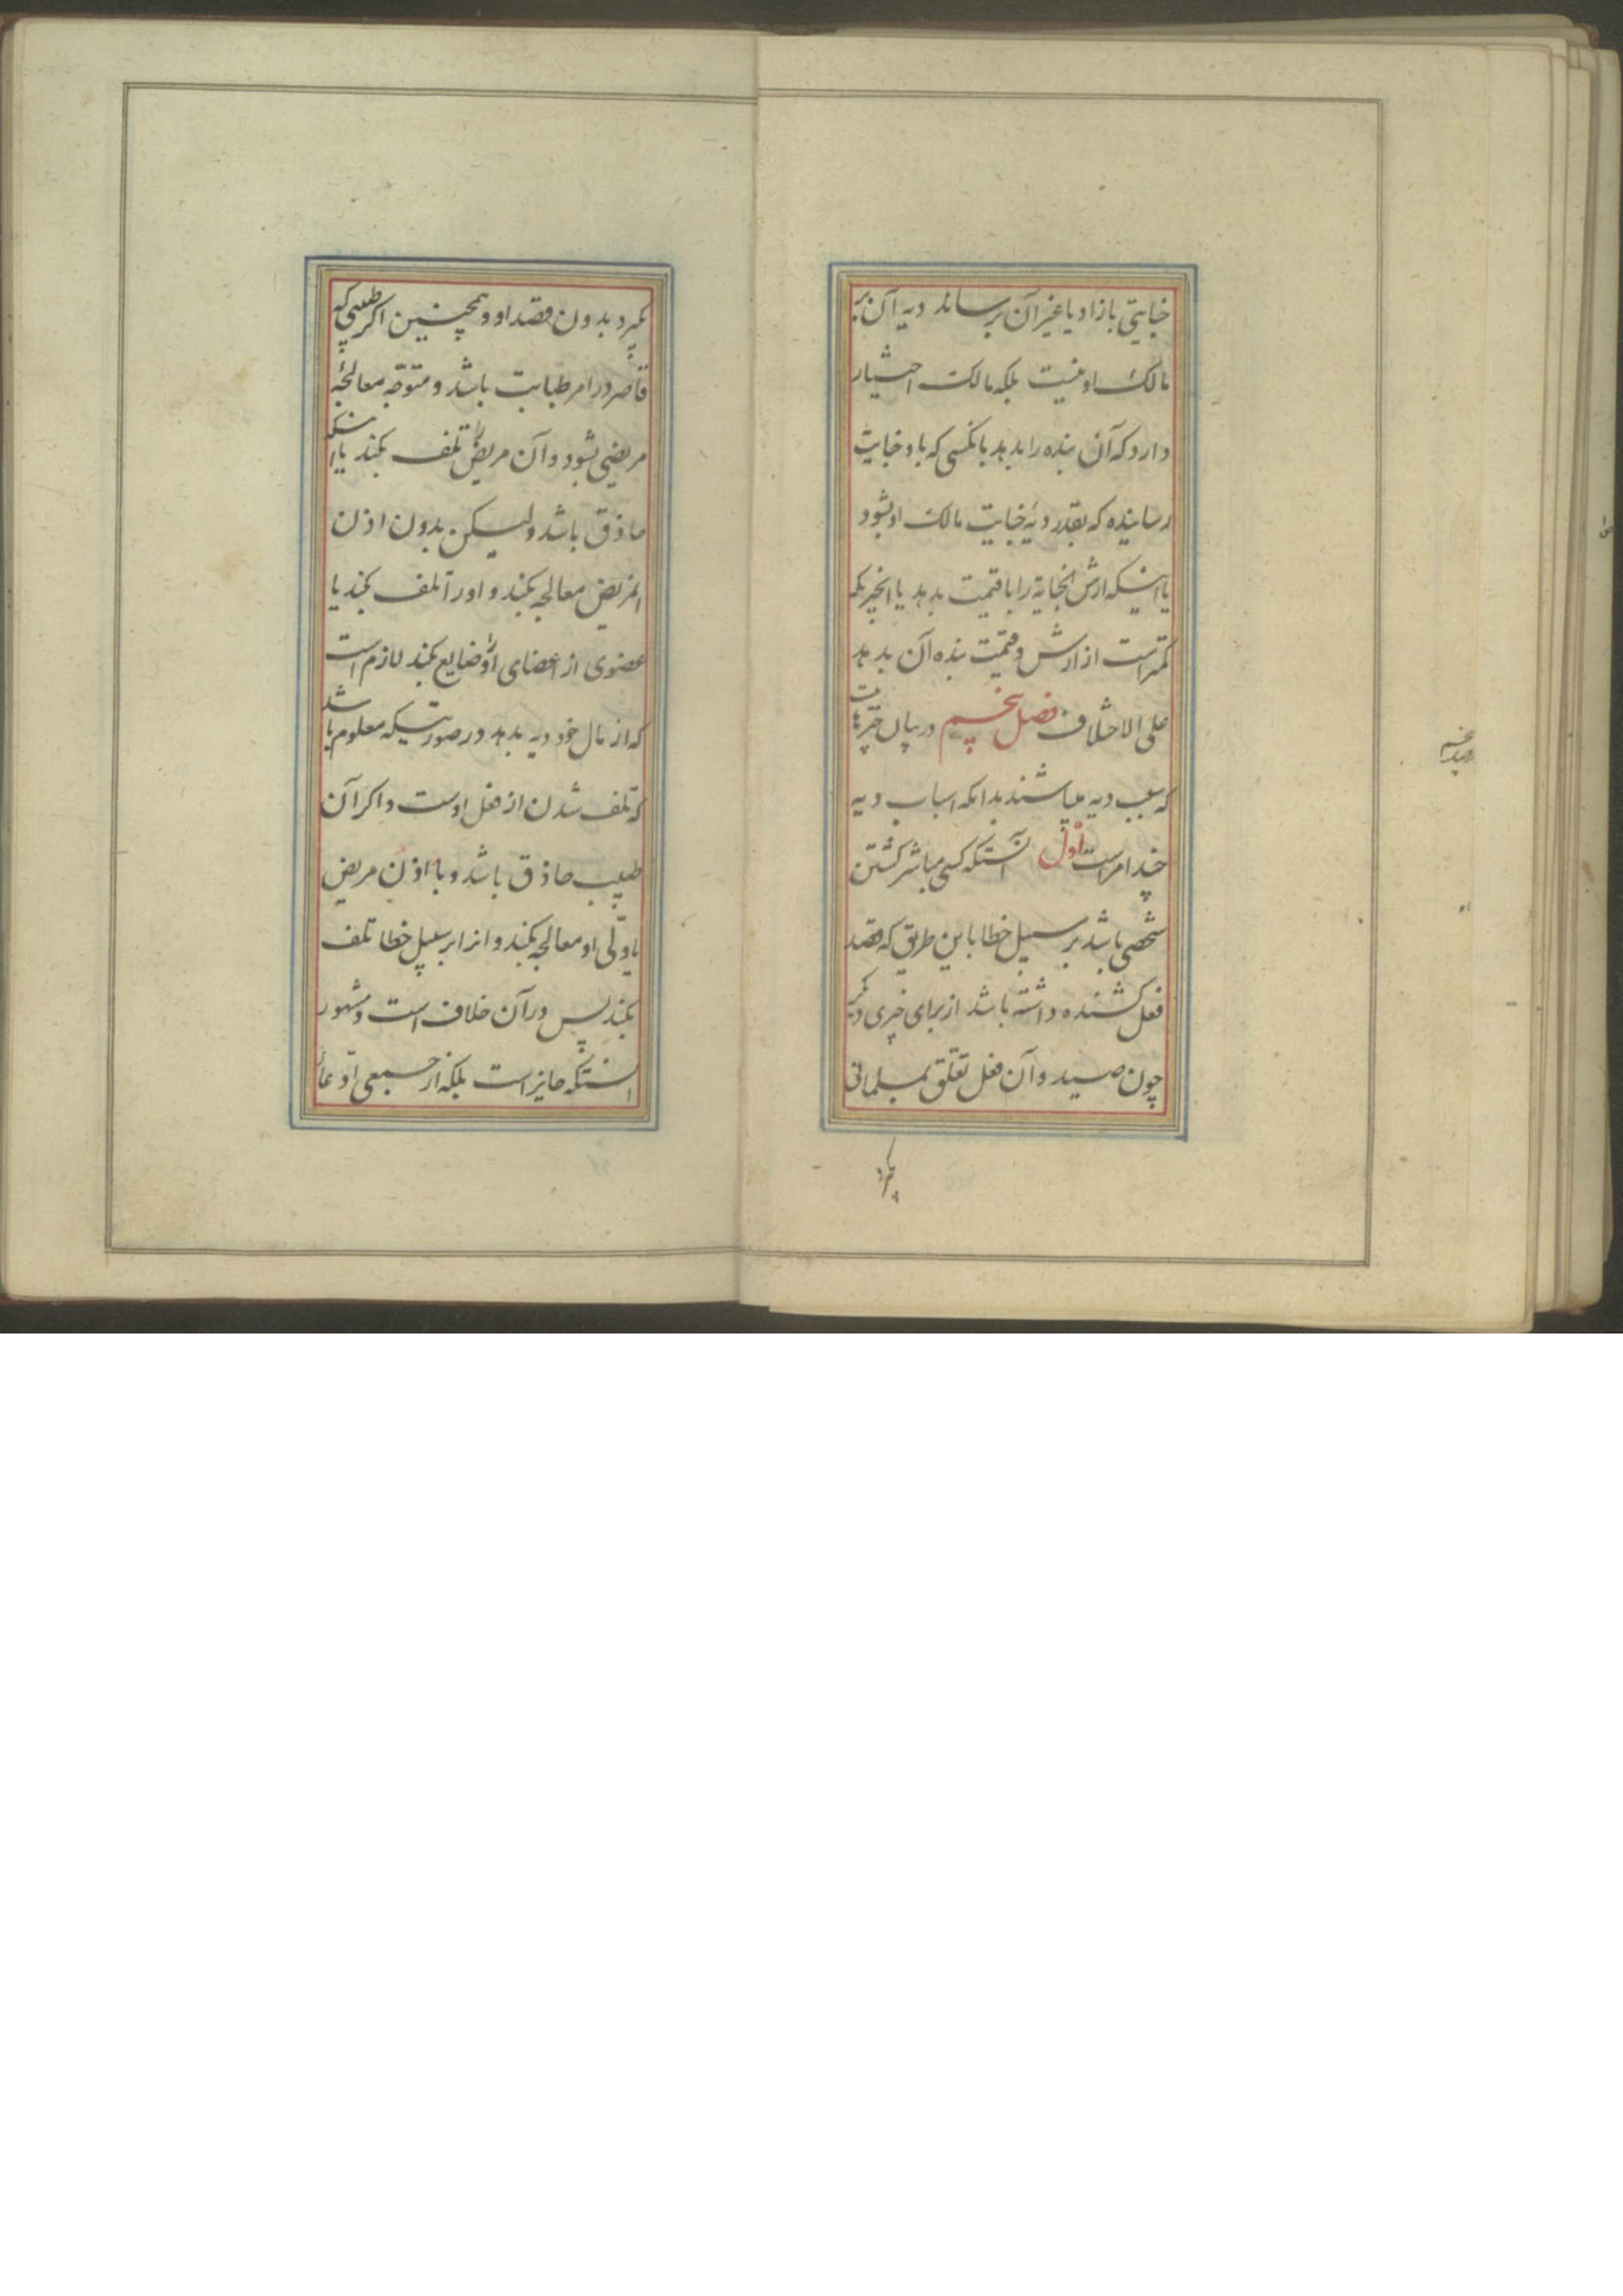 جنایتی بازاد یا غیر آن برساند دیه آن بر
مالک او نیست بلکه مالک اختیار
دارد که آن بنده را بدهد بانکسی که باو جنایت
رسانیده که بقدر دیه جنایت مالک او بشود
یا اینکه ارش الجنایة را با قیمت بدهد یا انچیزیکه
کمتر است از ارش و قیمت بنده آن بدهد
علی الاختلاف فصل پنجم در بیان چیزهایت
که سبب دیه میباشند بدانکه اسباب دیه
چند امر است اول آنستکه کسی مباشر کشتن
شخصی باشد بر سبیل خطا باین طریق که قصد
فعل کشنده داشته باشد از برای چیزی دیگر
چون صید و آن فعل تعلق بمسلمانی
بگیرد
بگیرد بدون قصد او و همچنین اگر طبیبی که
قاصر در امر طبابت باشد و متوجه معالجهٔ
مریضی بشود و آن مریض را تلف بکند یا اینکه
حاذق باشد و لیکن بدون اذن
المریض معالجه بکند و او را تلف بکند یا
عضوی از اعضای او را ضایع بکند لازم است
که از مال خود دیه بدهد در صورتیکه معلوم باشد
که تلف شدن از فعل اوست و اگر آن
طبیب حاذق باشد و با اذن مریض
یا ولّی او معالجه بکند و انرا بر سبیل خطا تلف
بکند پس در آن خلاف است و مشهور
انستکه جایز است بلکه از جمعی ادّعای